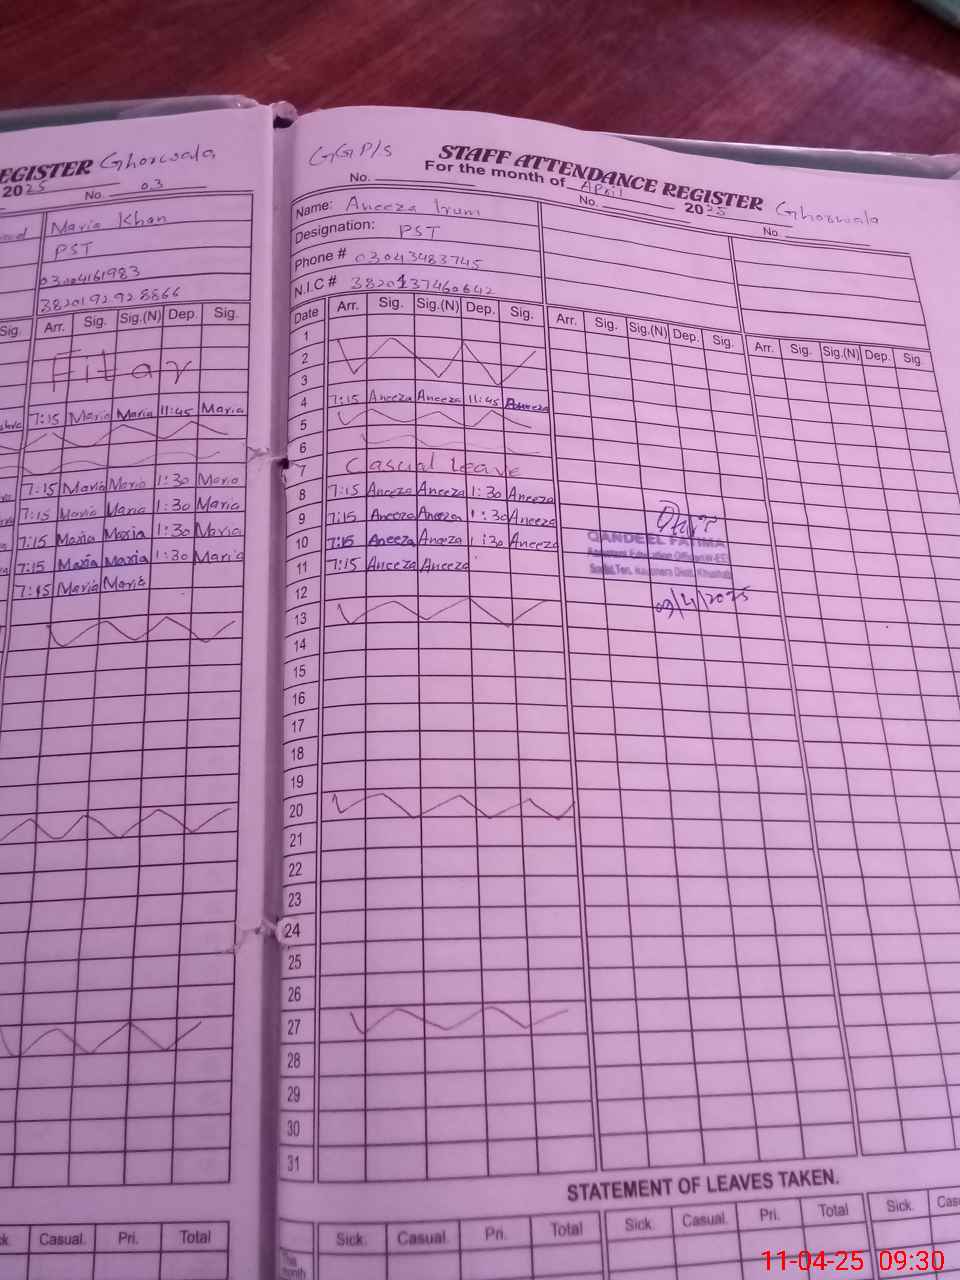 EGISTER Ghorwala
2025
No. 03
Maria Khan
PST
03004161983
3820192928866
Sig. Arr. Sig. Sig.(N) Dep. Sig.
Fitar
7:15 Maria Maria 11:45 Maria
7:15 Maria Maria 1:30 Maria
7:15 Maria Maria 1:30 Maria
7:15 Maria Maria 1:30 Maria
7:15 Maria Maria 1:30 Maria
7:15 Maria Maria
Casual. Pri. Total
GGP/S STAFF ATTENDANCE REGISTER Ghorwala
For the month of April 2025
No. No. No.
Name: Aneeza Irum
Designation: PST
Phone # 03043483745
N.I.C # 3820137460642
Date Arr. Sig. Sig.(N) Dep. Sig. Arr. Sig. Sig.(N) Dep. Sig. Arr. Sig. Sig.(N) Dep. Sig
1
2
3
4 7:15 Aneeza Aneeza 11:45 Aneeza
5
6
7 Casual Leave
8 7:15 Aneeza Aneeza 1:30 Aneeza
9 7:15 Aneeza Aneeza 1:30 Aneeza
10 7:15 Aneeza Aneeza 1:30 Aneeza
11 7:15 Aneeza Aneeza
QANDEEL FATIMA
Assistant Education Officer
09/4/2025
12
13
14
15
16
17
18
19
20
21
22
23
24
25
26
27
28
29
30
31
STATEMENT OF LEAVES TAKEN.
Sick. Casual. Pri. Total Sick. Casual. Pri. Total Sick. Cas
This month
11-04-25 09:30